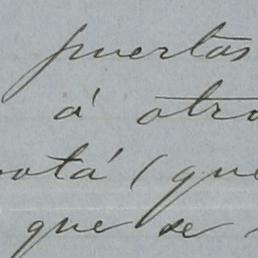 puertas
á otro
otá (que
que se